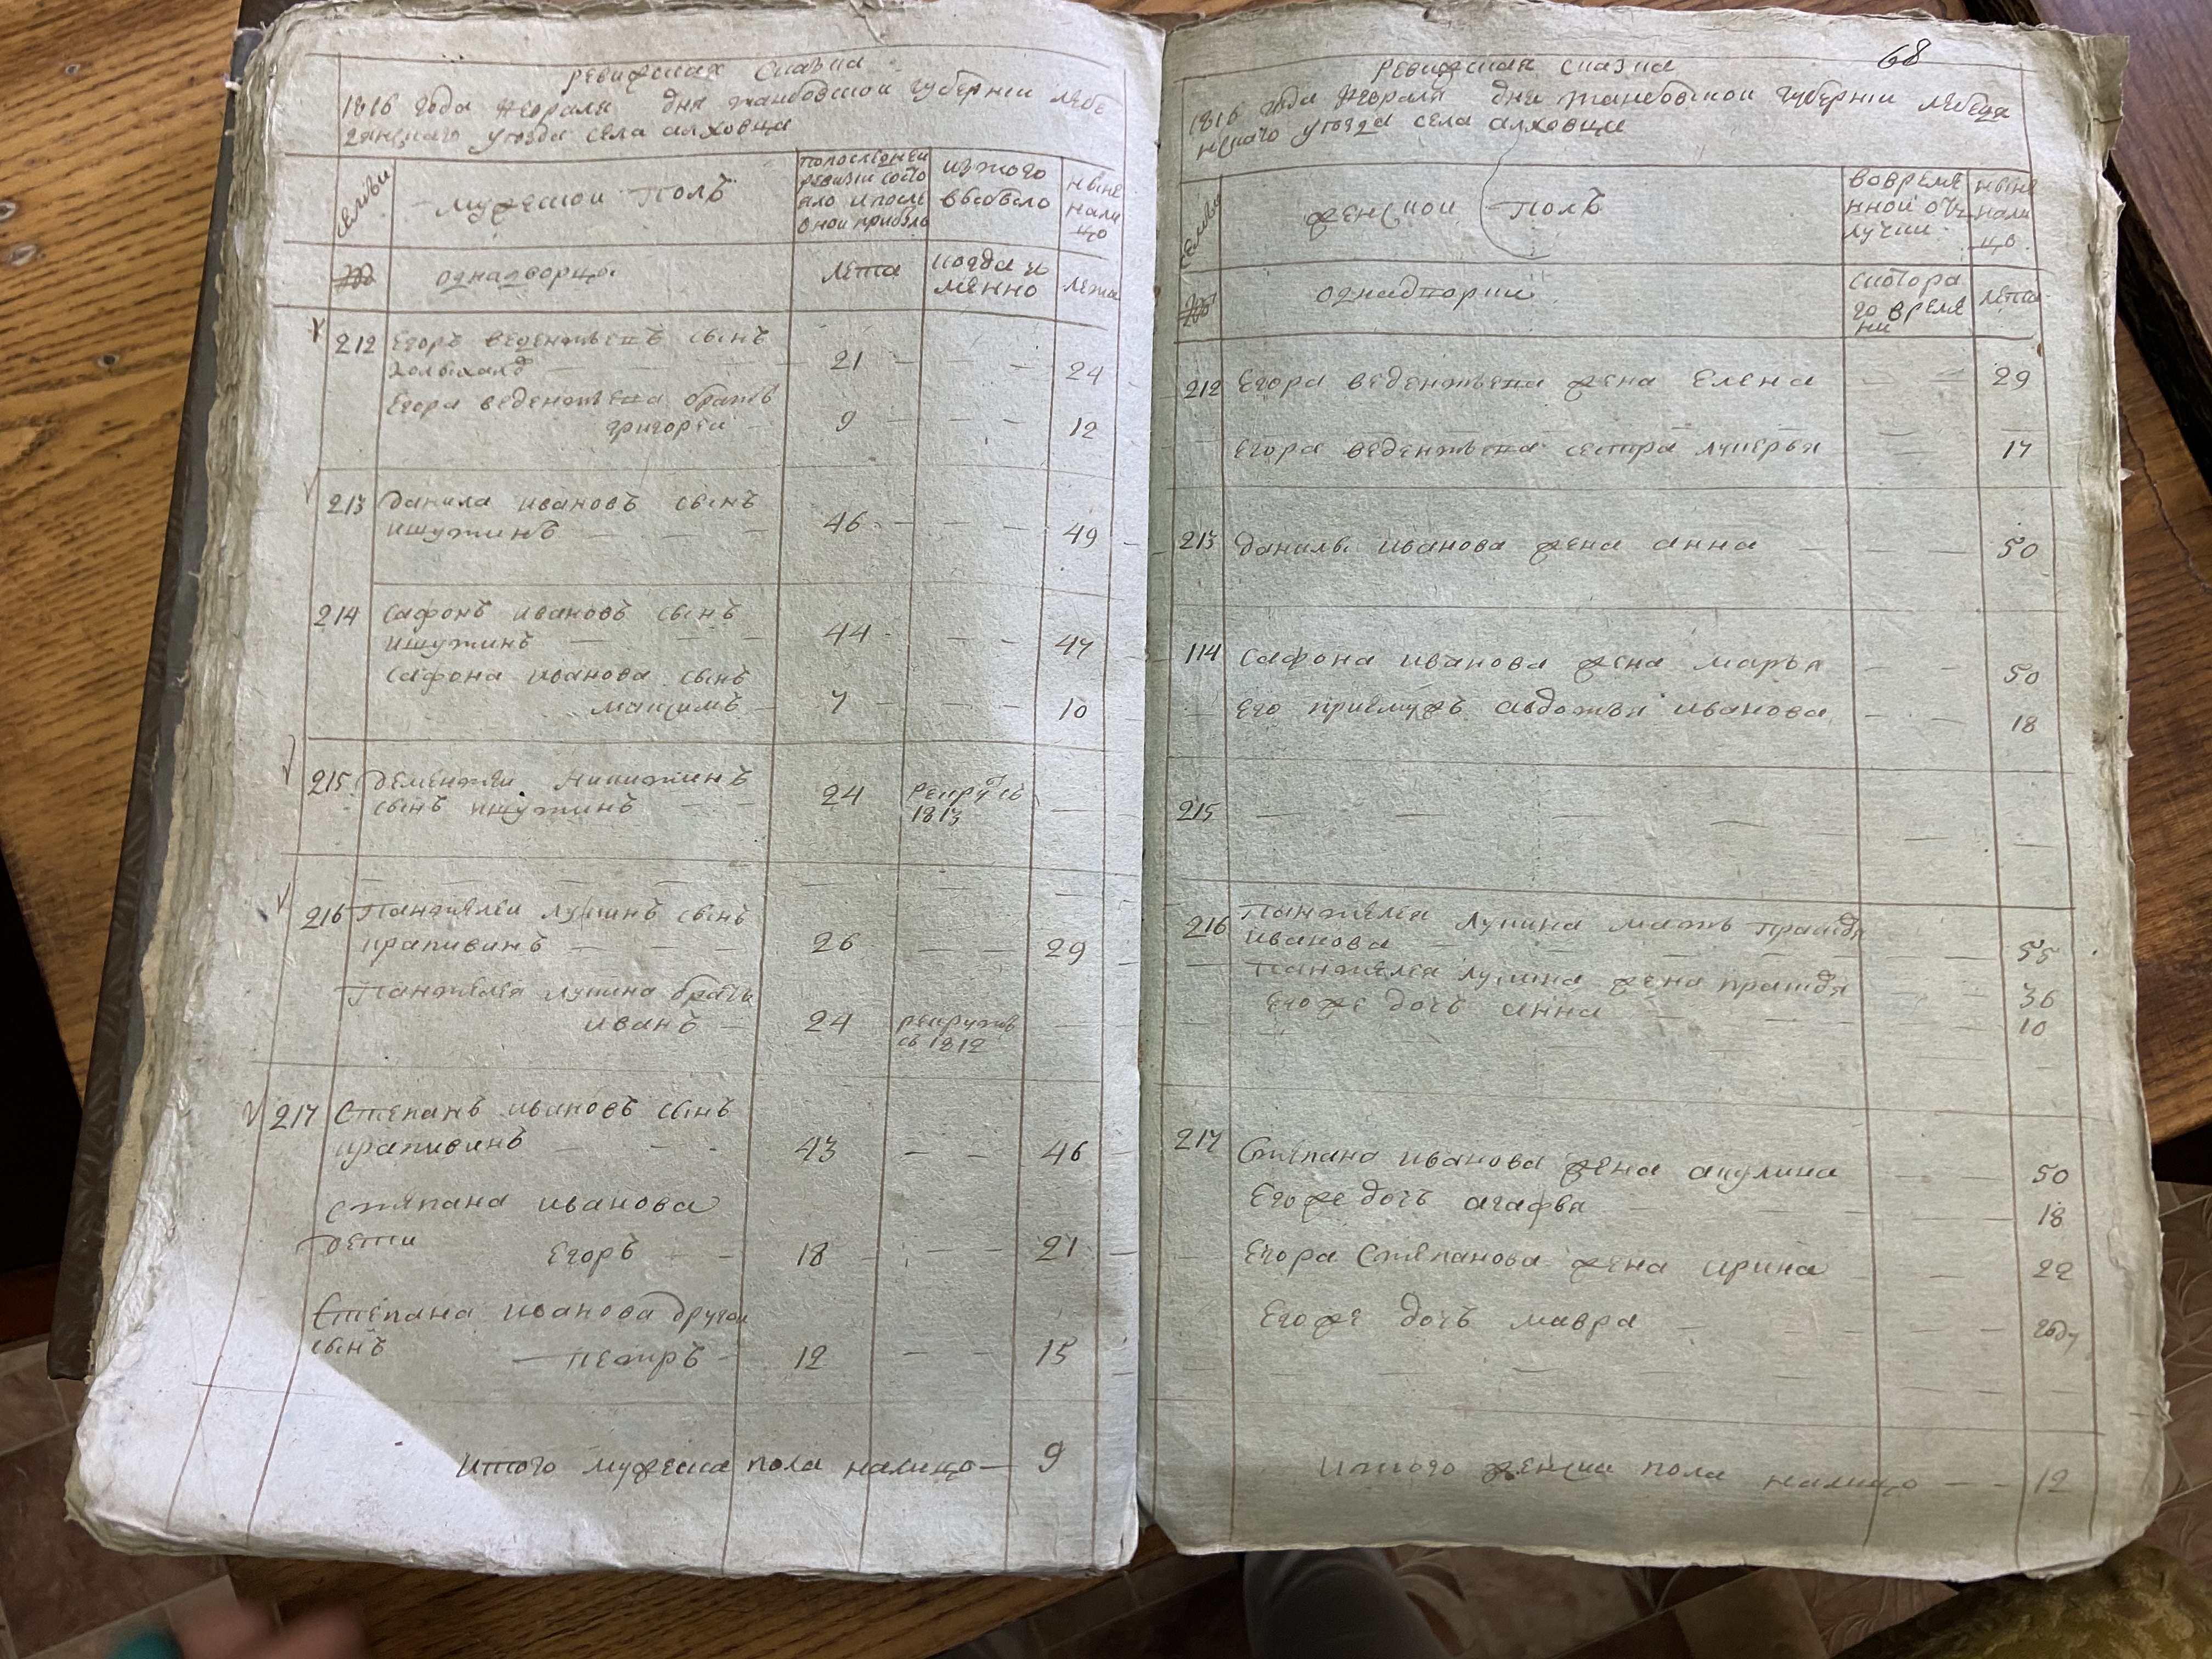 ревижская сказка
1816 года февраля дня танбовской губернии лебе
дянского уезда села алховца
семьи
мужеской полъ
попоследней
ревизии состо
яло ипосле
оной прибыло
изтого
выбыло
ныне
нали
цо
однадворцы
лета
когда и
менно
лета
212 Егоръ веденктьевъ сынъ
21 24
Егора веденктьева братъ
григореи 9 12
213 данила ивановъ сынъ
ишутинъ 46 49
214 сафонъ ивановъ сынъ
ишутинъ 44 47
сафона иванова сынъ
максимъ 7 10
215 дементеи никитинъ
сынъ ишутинъ 24 рекрутъ
1813
216 Пантелеи лукинъ сынъ
крапивинъ 26 29
Пантелея лукина братъ
иванъ 24 рекрутъ
съ 1812
217 Степанъ ивановъ сынъ
крапивинъ 43 46
степана иванова
дети Егоръ 18 21
Степана иванова другой
сынъ петръ 12 15
Итого мужеска пола налицо 9
68
ревижская сказка
1816 года февраля дня танбовской губернии лебедя
нскаго уезда села алховца
семьи
женской полъ
вовремя
нной отъ
лучки
ныне
нали
цо
однадворки
скотора
го време
ни
лета
212 Егора веденктьева жена Елена 29
Егора веденктьева сестра лукерья 17
213 данилы иванова жена анна 50
114 сафона иванова жена марья 50
Его приемужъ авдотья иванова 18
215
216 Пантелея лукина мать Праскдя
иванова 55
Пантелея лукина жена праскдя 36
Егоже дочь анна 10
217
Степана иванова жена акулина 50
Егоже дочь агафья 18
Егора Степанова жена ирина 22
Егоже дочь мавра году
Итого женска пола налицо 12